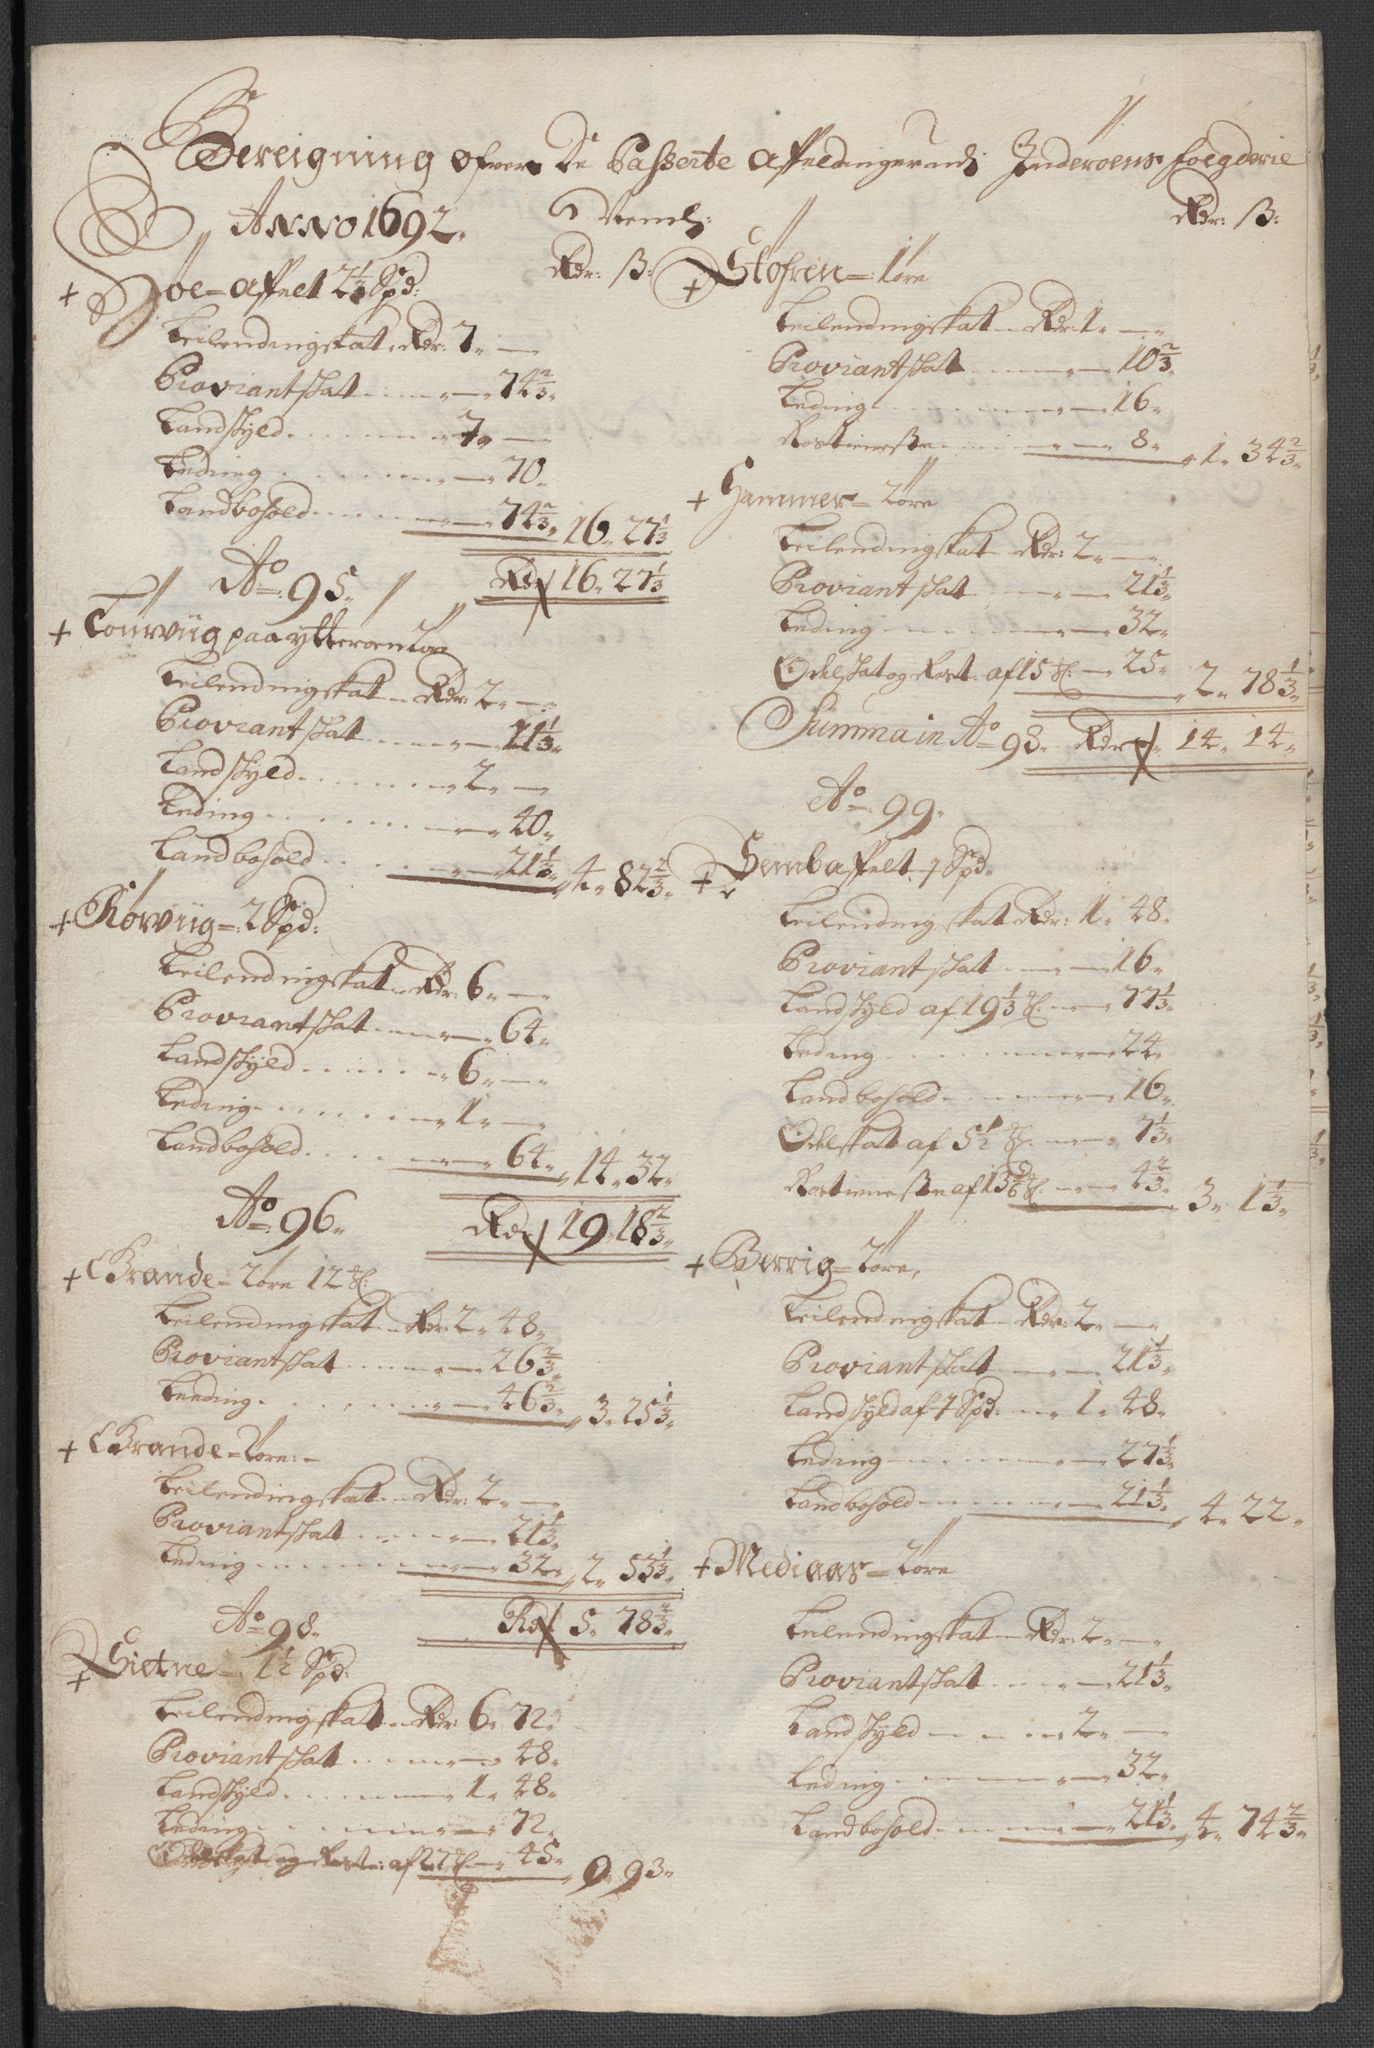 Bereigning ofver De Passerte affeldinger udj Inderoens foegderie
Anno 1692.
Nemlj:
Rdr: ß:
+ Hoe affelt 2 1/3 Spd:
Leilendingskat Rdr: 7 " —
Proviantskat 74 2/3 "
Landskyld 7 " —
Leding 70 "
Landbohold 74 2/3 " 16 " 27 1/3
Rdr 16 " 27 1/3
Ao 95 "
+ Tourviig paa ytteroen 2 øre
Leilendingskat Rdr: 2 " —
Proviantskat 21 1/3 "
Landskyld 2 " —
Leding 40 "
Landbohold 21 1/3 " 4 " 82 2/3 "
+ Rørviig 2 Spd:
Leilendingskat Rdr: 6 " —
Proviantskat 64 "
Landskyld 6 " —
Leding 1 " —
Landbohold 64 " 14 " 32 "
Rdr 19 " 18 2/3 "
Ao 96 "
+ Grande 2 øre 12 ℔:
Leilendingskat Rdr: 2 " 48 "
Proviantskat 26 2/3 "
Leeding 46 2/3 " 3 " 25 1/3 "
+ Grande 2 øre:
Leilendingskat Rdr: 2 " —
Proviantskat 21 1/3 "
Leding 32 " 2 " 53 1/3 "
Rdr 5 " 78 2/3 "
Ao 98 "
+ 1 1/2 Spd:
Leilendingskat Rdr: 6 " 72 "
Proviantskat 48 "
Landskyld 1 " 48 "
Leding 72 "
Odelskat og Rost: af 27 ℔ 45 " 9 " 93 "
Rdr: ß:
+ Stofren 1 øre
Leilendingskat Rdr: 1 " —
Proviantskat 10 2/3 "
Leding 16 "
Rostieneste 8 " 1 " 34 2/3 "
+ Hammer 2 øre
Leilendingskat Rdr: 2 " —
Proviantskat 21 1/3 "
Leding 32 "
Odelskat og Rost: af 15 ℔: 25 " 2 " 78 1/3 "
Summa in Ao 98 " Rdr 14 " 14 "
Ao 99 "
+ Semb affelt 1 Spd "
Leilendingskat Rdr: 1 " 48 "
Proviantskat 16 "
Landskyld af 19 1/3 ℔: 77 1/3 "
Leding 24 "
Landbohold 16 "
Odelskat af 5 1/2 ℔: 7 1/3 "
Rostieneste af 13 5/6 ℔: 4 2/3 " 3 " 1 1/3 "
+ Verrig 2 øre,
Leilendingskat Rdr: 2 " —
Proviantskat 21 1/3 "
Landskyld af 1 Spd: 1 " 48 "
Leding 27 1/3 "
Landbohold 21 1/3 " 4 " 22 "
+ Mediaas 2 øre
Leilendingskat Rdr: 2 " —
Proviantskat 21 1/3 "
Landskyld 2 " —
Leding 32 "
Landbohold 21 1/3 " 4 " 74 2/3 "